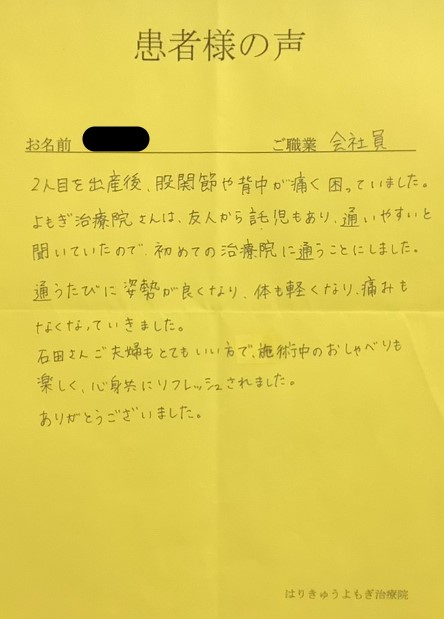 患者様の声
お名前 ご職業 会社員
2人目を出産後、股関節や背中が痛く困っていました。
よもぎ治療院さんは、友人から託児もあり、通いやすいと
聞いていたので、初めての治療院に通うことにしました。
通うたびに姿勢が良くなり、体も軽くなり、痛みも
なくなっていきました。
石田さんご夫婦もとてもいい方で、施術中のおしゃべりも
楽しく、心身共にリフレッシュされました。
ありがとうございました。
はりきゅうよもぎ治療院